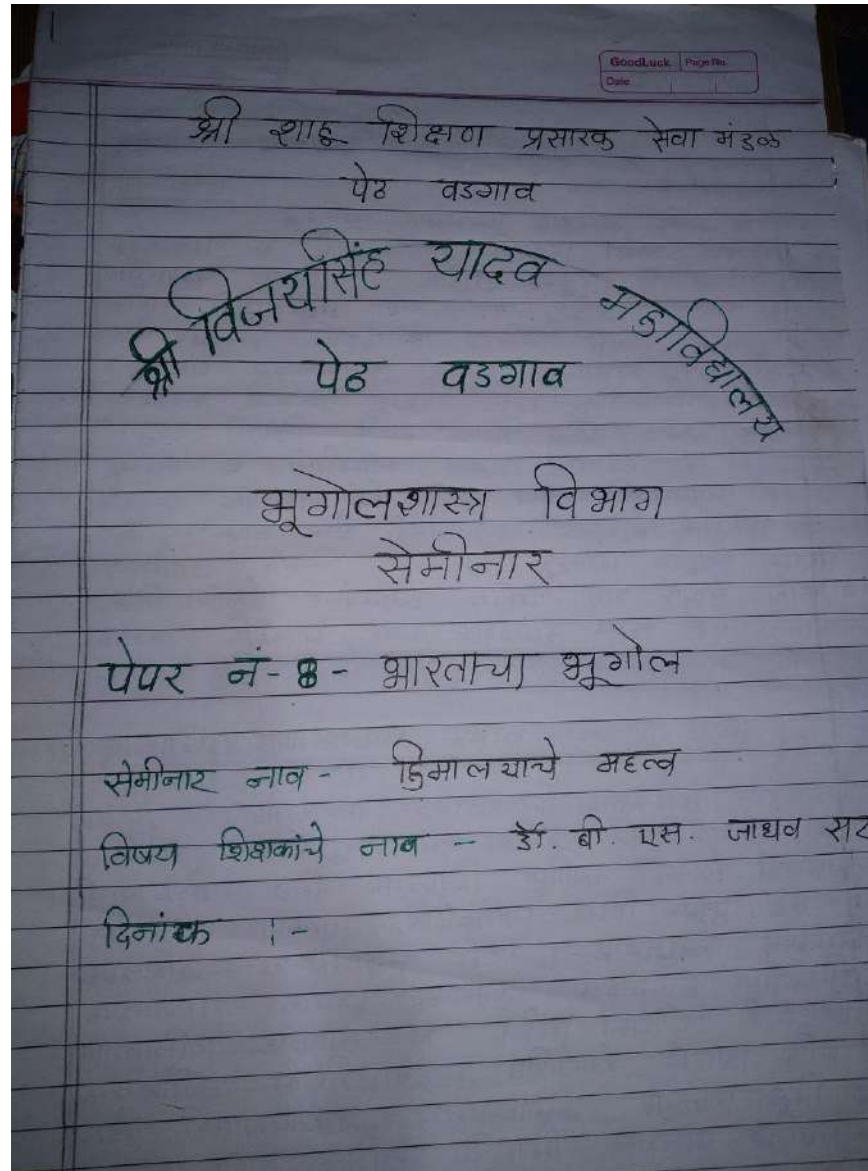 GoodLuck Page No.
Date
श्री शाहू शिक्षण प्रसारक सेवा मंडळ
पेठ वडगाव
श्री विजयसिंह यादव महाविद्यालय
पेठ वडगाव
भूगोलशास्त्र विभाग
सेमीनार
पेपर नं- 8 - भारताचा भूगोल
सेमीनार नाव - हिमालयाचे महत्व
विषय शिक्षकांचे नाव - डॉ. बी. एस. जाधव सर
दिनांक :-